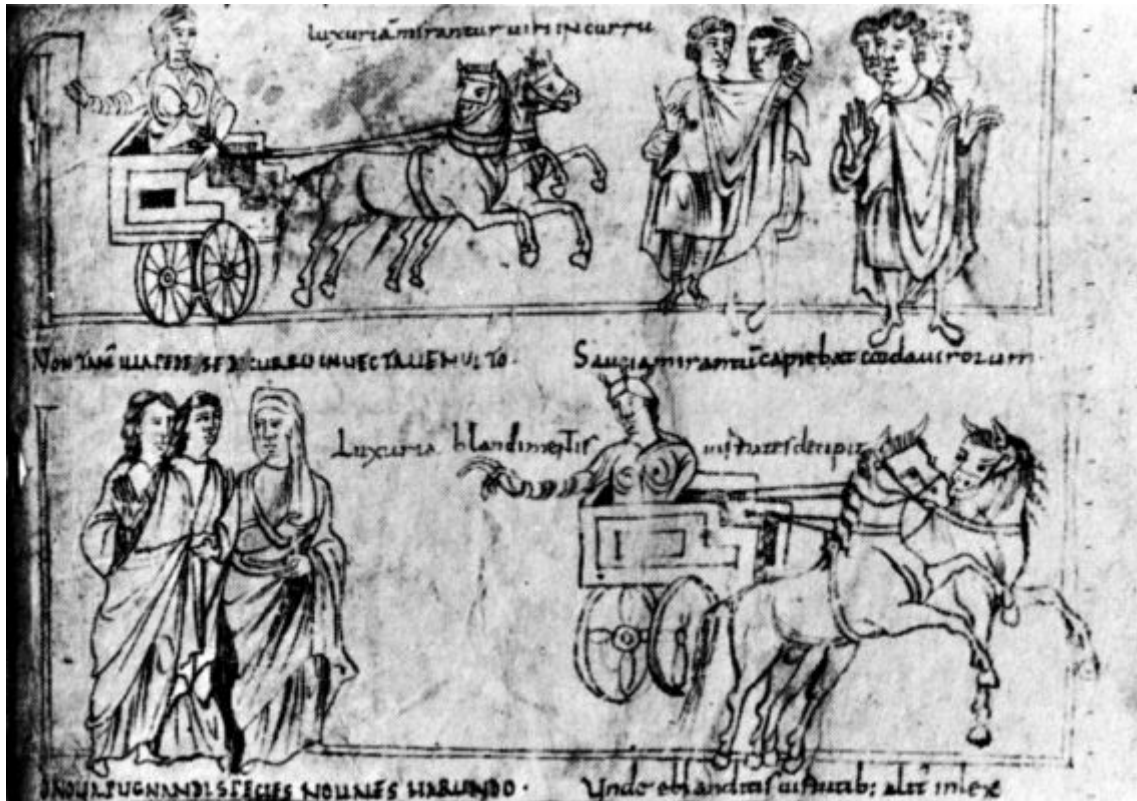 luxuriã mirantur uiri in curru
NON TAM̃ ILLA PEDES SED CURRU INUECTA UENUSTO·
Saucia mirantũ capiebat corda uirorum·
Luxuria blandimentis uirtutes decipit
O NOUA PUGNANDI SPECIES NON LES HARUNDO·
Unde eblanditis uirtutib; alit inlex